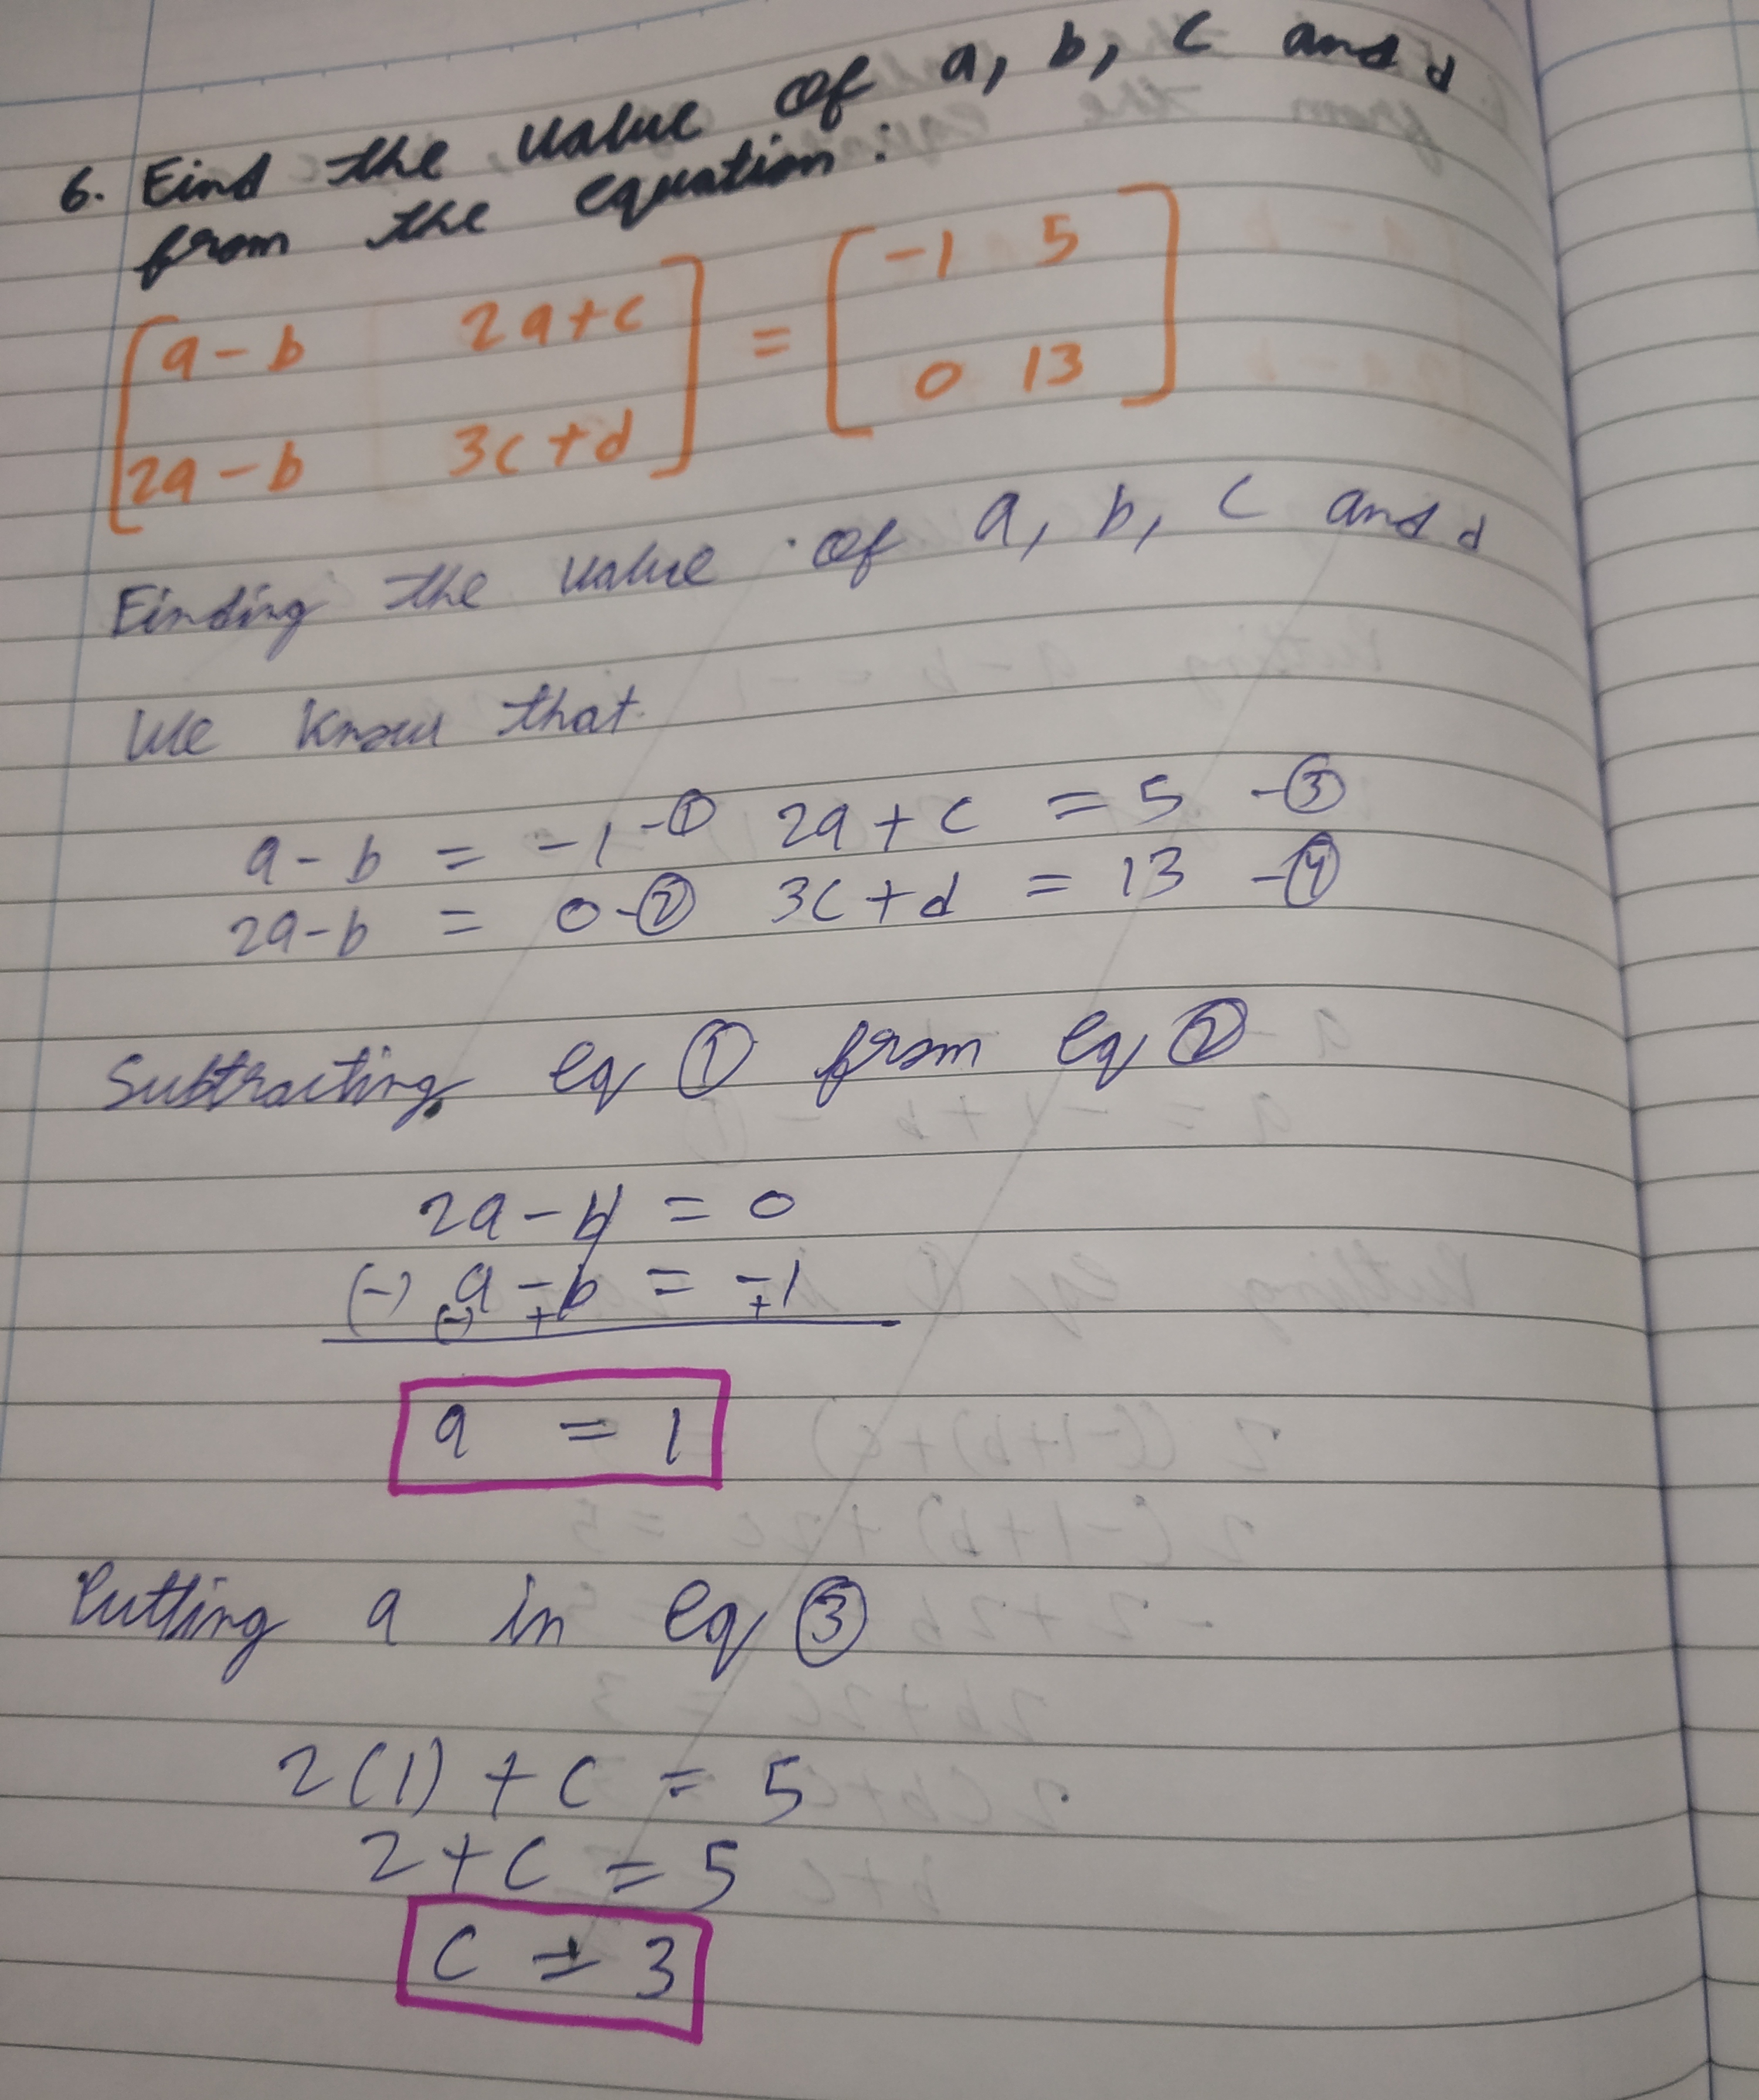 6. Find the value of a, b, c and d
from the equation:
[a-b 2a+c] = [-1 5]
[2a-b 3c+d] [0 13]
Finding the value of a, b, c and d
We know that
a-b = -1 -① 2a+c = 5 -③
2a-b = 0 -② 3c+d = 13 -④
Subtracting eq ① from eq ②
2a-b = 0
(-) a - b = -1
(-) + +
a = 1
Putting a in eq ③
2(1) + c = 5
2+c = 5
c = 3